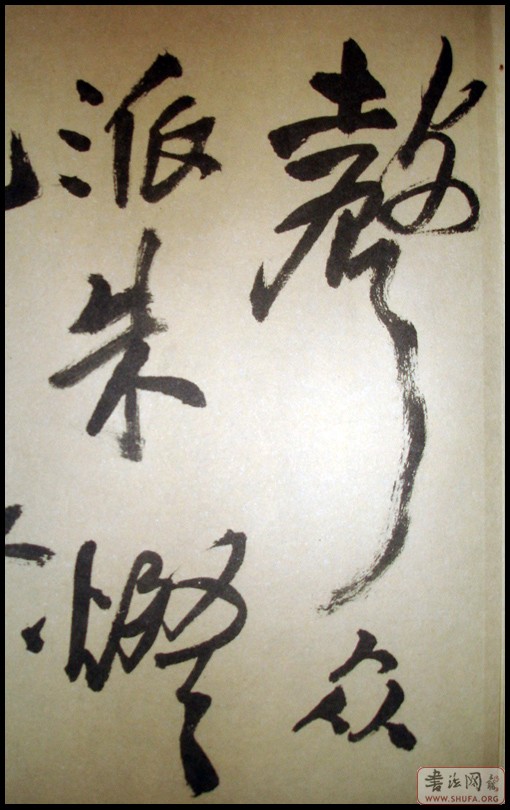 聲众
派朱燈
書法网
WWW.SHUFA.ORG